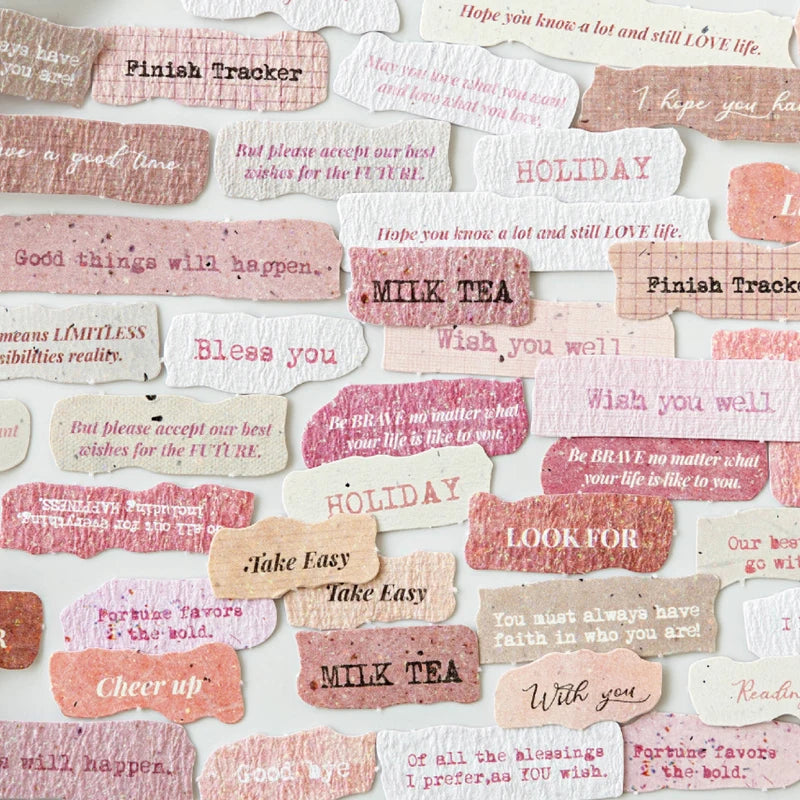 Hope you know a lot and still LOVE life.
ays have
you are!
Finish Tracker
May you love what you want
and love what you love.
I hope you ha
ve a good time.
But please accept our best
wishes for the FUTURE.
HOLIDAY
L
Hope you know a lot and still LOVE life.
Good things will happen.
MILK TEA
Finish Tracke
means LIMITLESS
sibilities reality.
Bless you
Wish you well
Wish you well
But please accept our best
wishes for the FUTURE.
Be BRAVE no matter what
your life is like to you.
Be BRAVE no matter what
your life is like to you.
Go all out for everything,
including HAPPINESS.
HOLIDAY
LOOK FOR
Take Easy
Our bes
go wit
Take Easy
R
Fortune favors
the bold.
You must always have
faith in who you are!
I
Cheer up
MILK TEA
With you
Readin
s will happen.
Good bye
Of all the blessings
I prefer,as YOU wish.
Fortune favors
the bold.